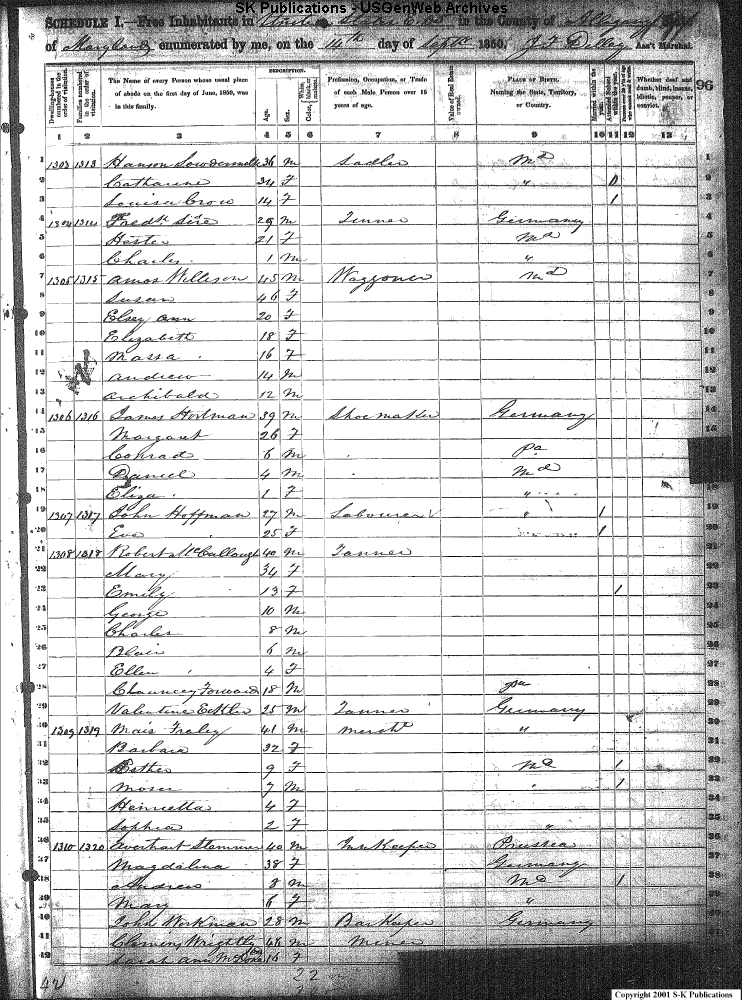 SK Publications - USGenWeb Archives
SCHEDULE I.—Free Inhabitants in in the County of Allegany
of Maryland enumerated by me, on the 14th day of Septr 1850. Ass't Marshal.
96
Dwelling-houses numbered in the order of visitation.
Families numbered in the order of visitation.
The Name of every Person whose usual place of abode on the first day of June, 1850, was in this family.
DESCRIPTION.
Age.
Sex.
Color, White, black, or mulatto.
Profession, Occupation, or Trade of each Male Person over 15 years of age.
Value of Real Estate owned.
PLACE OF BIRTH. Naming the State, Territory, or Country.
Married within the year.
Attended School within the year.
Whether deaf and dumb, blind, insane, idiotic, pauper, or convict.
1 2 3 4 5 6 7 8 9 10 11 12 13
1 1303 1313 Hanson 36 M Sadler Md 1
2 Catharine 34 F " 2
3 Louisa Crow 14 F 1 3
4 1304 1314 Fredk Sire 29 M Tinner Germany 4
5 Hester 21 F Md 5
6 Charles 1 M " 6
7 1305 1315 Amos Willison 45 M Waggoner Md 7
8 Susan 46 F 8
9 Elsey Ann 20 F 9
10 Elizabeth 18 F 10
11 Massa 16 F 11
12 Andrew 14 M 12
13 Archibald 12 M 13
14 1306 1316 James Hortman 39 M Shoemaker Germany 14
15 Margaret 26 F 15
16 Conrad 6 M Pa
17 Daniel 4 M Md
18 Eliza 1 F " 18
19 1307 1317 John Hoffman 27 M Labourer " 1 19
20 Eve 25 F 1 20
21 1308 1318 Robert McCullough 40 M Tanner 21
22 Mary 34 F 22
23 Emily 13 F 1 23
24 George 10 M 24
25 Charles 8 M 25
26 Blair 6 M 26
27 Ellen 4 F 27
28 Chauncey Forward 18 M Pa 28
29 Valentine 25 M Tanner Germany 29
30 1309 1319 Mais Fraley 41 M Mercht " 30
31 Barbara 32 F 31
32 Esther 9 F Md 1 32
33 Moses 7 M 1 33
34 Henrietta 4 F 34
35 Sophia 2 F " 35
36 1310 1320 Everhart Stemmer 40 M Inn Keeper Prussia 36
37 Magdalina 38 F Germany 37
38 Andrew 8 M Md 1 38
39 Mary 6 F " 39
40 John Workman 28 M Bar Keeper Germany 40
41 Wrightly 46 M Miner 41
42 Sarah Ann 16 F 42
42
22
Copyright 2001 S-K Publications